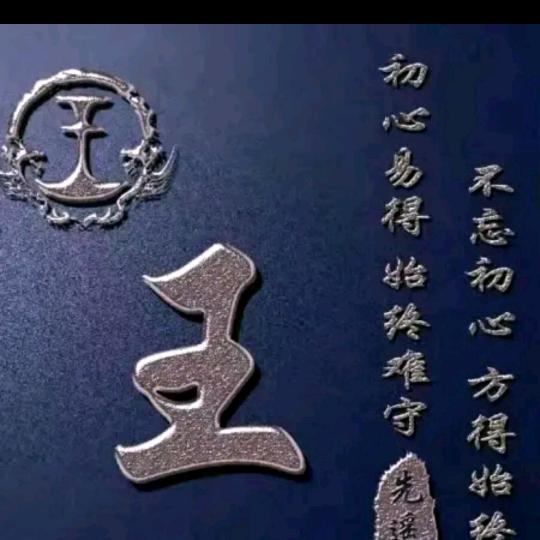 不忘初心 方得始终
初心易得 始终难守
王
王
先谣